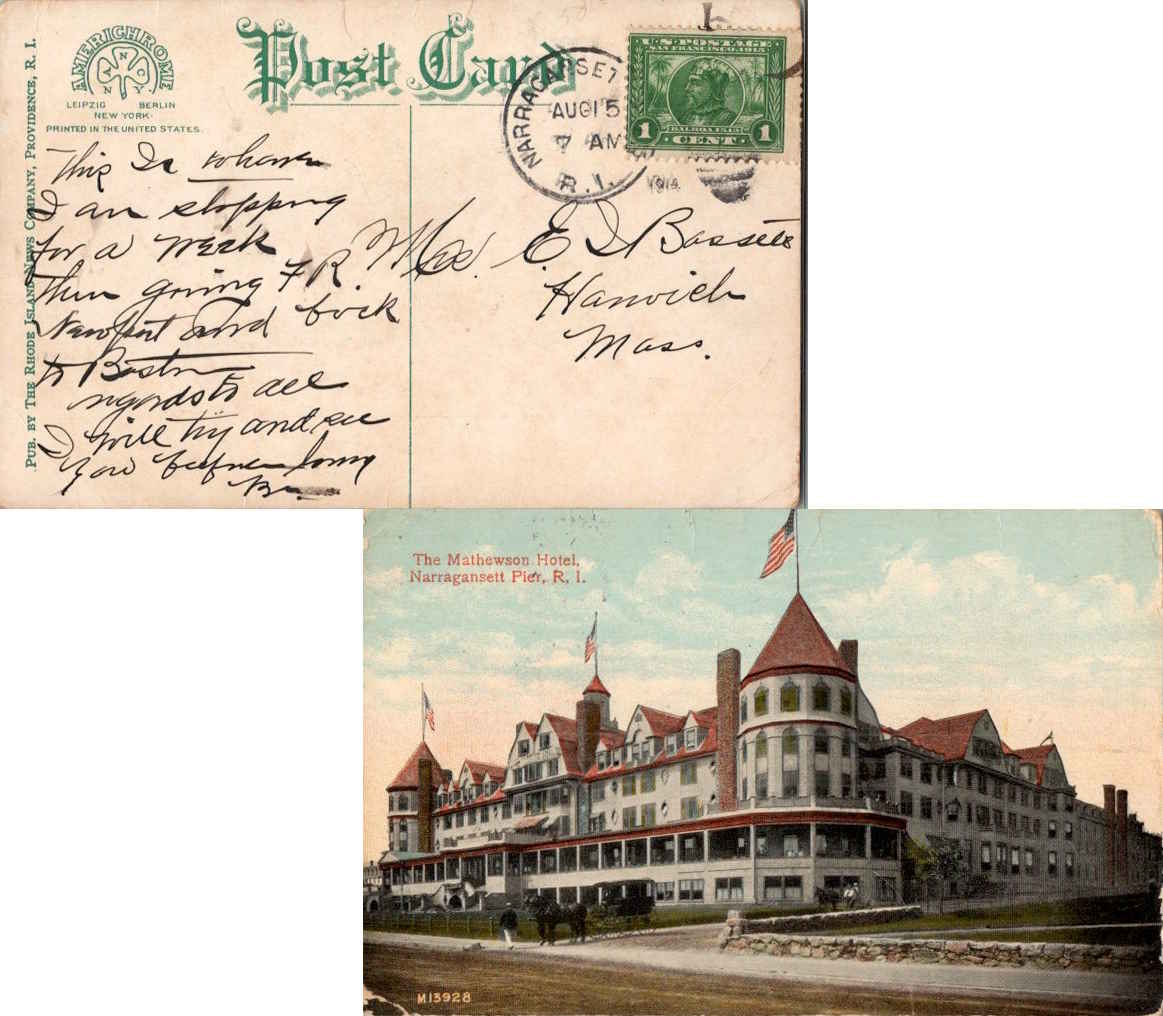 PUB. BY THE RHODE ISLAND NEWS COMPANY, PROVIDENCE, R. I.
AMERICHROME
A N C N Y
LEIPZIG BERLIN
NEW YORK
PRINTED IN THE UNITED STATES.
Post Card
NARRAGANSET
AUG 15
7 AM
R.I.
1914
U.S. POSTAGE
SAN FRANCISCO 1915
BALBOA 1513
1 CENT 1
This Is where
I am stopping
for a week
then going
Newport and back
to Boston
regards to all
I will try and see
you before long
E Bassett
Harwich
Mass.
The Mathewson Hotel,
Narragansett Pier, R, I.
M13928